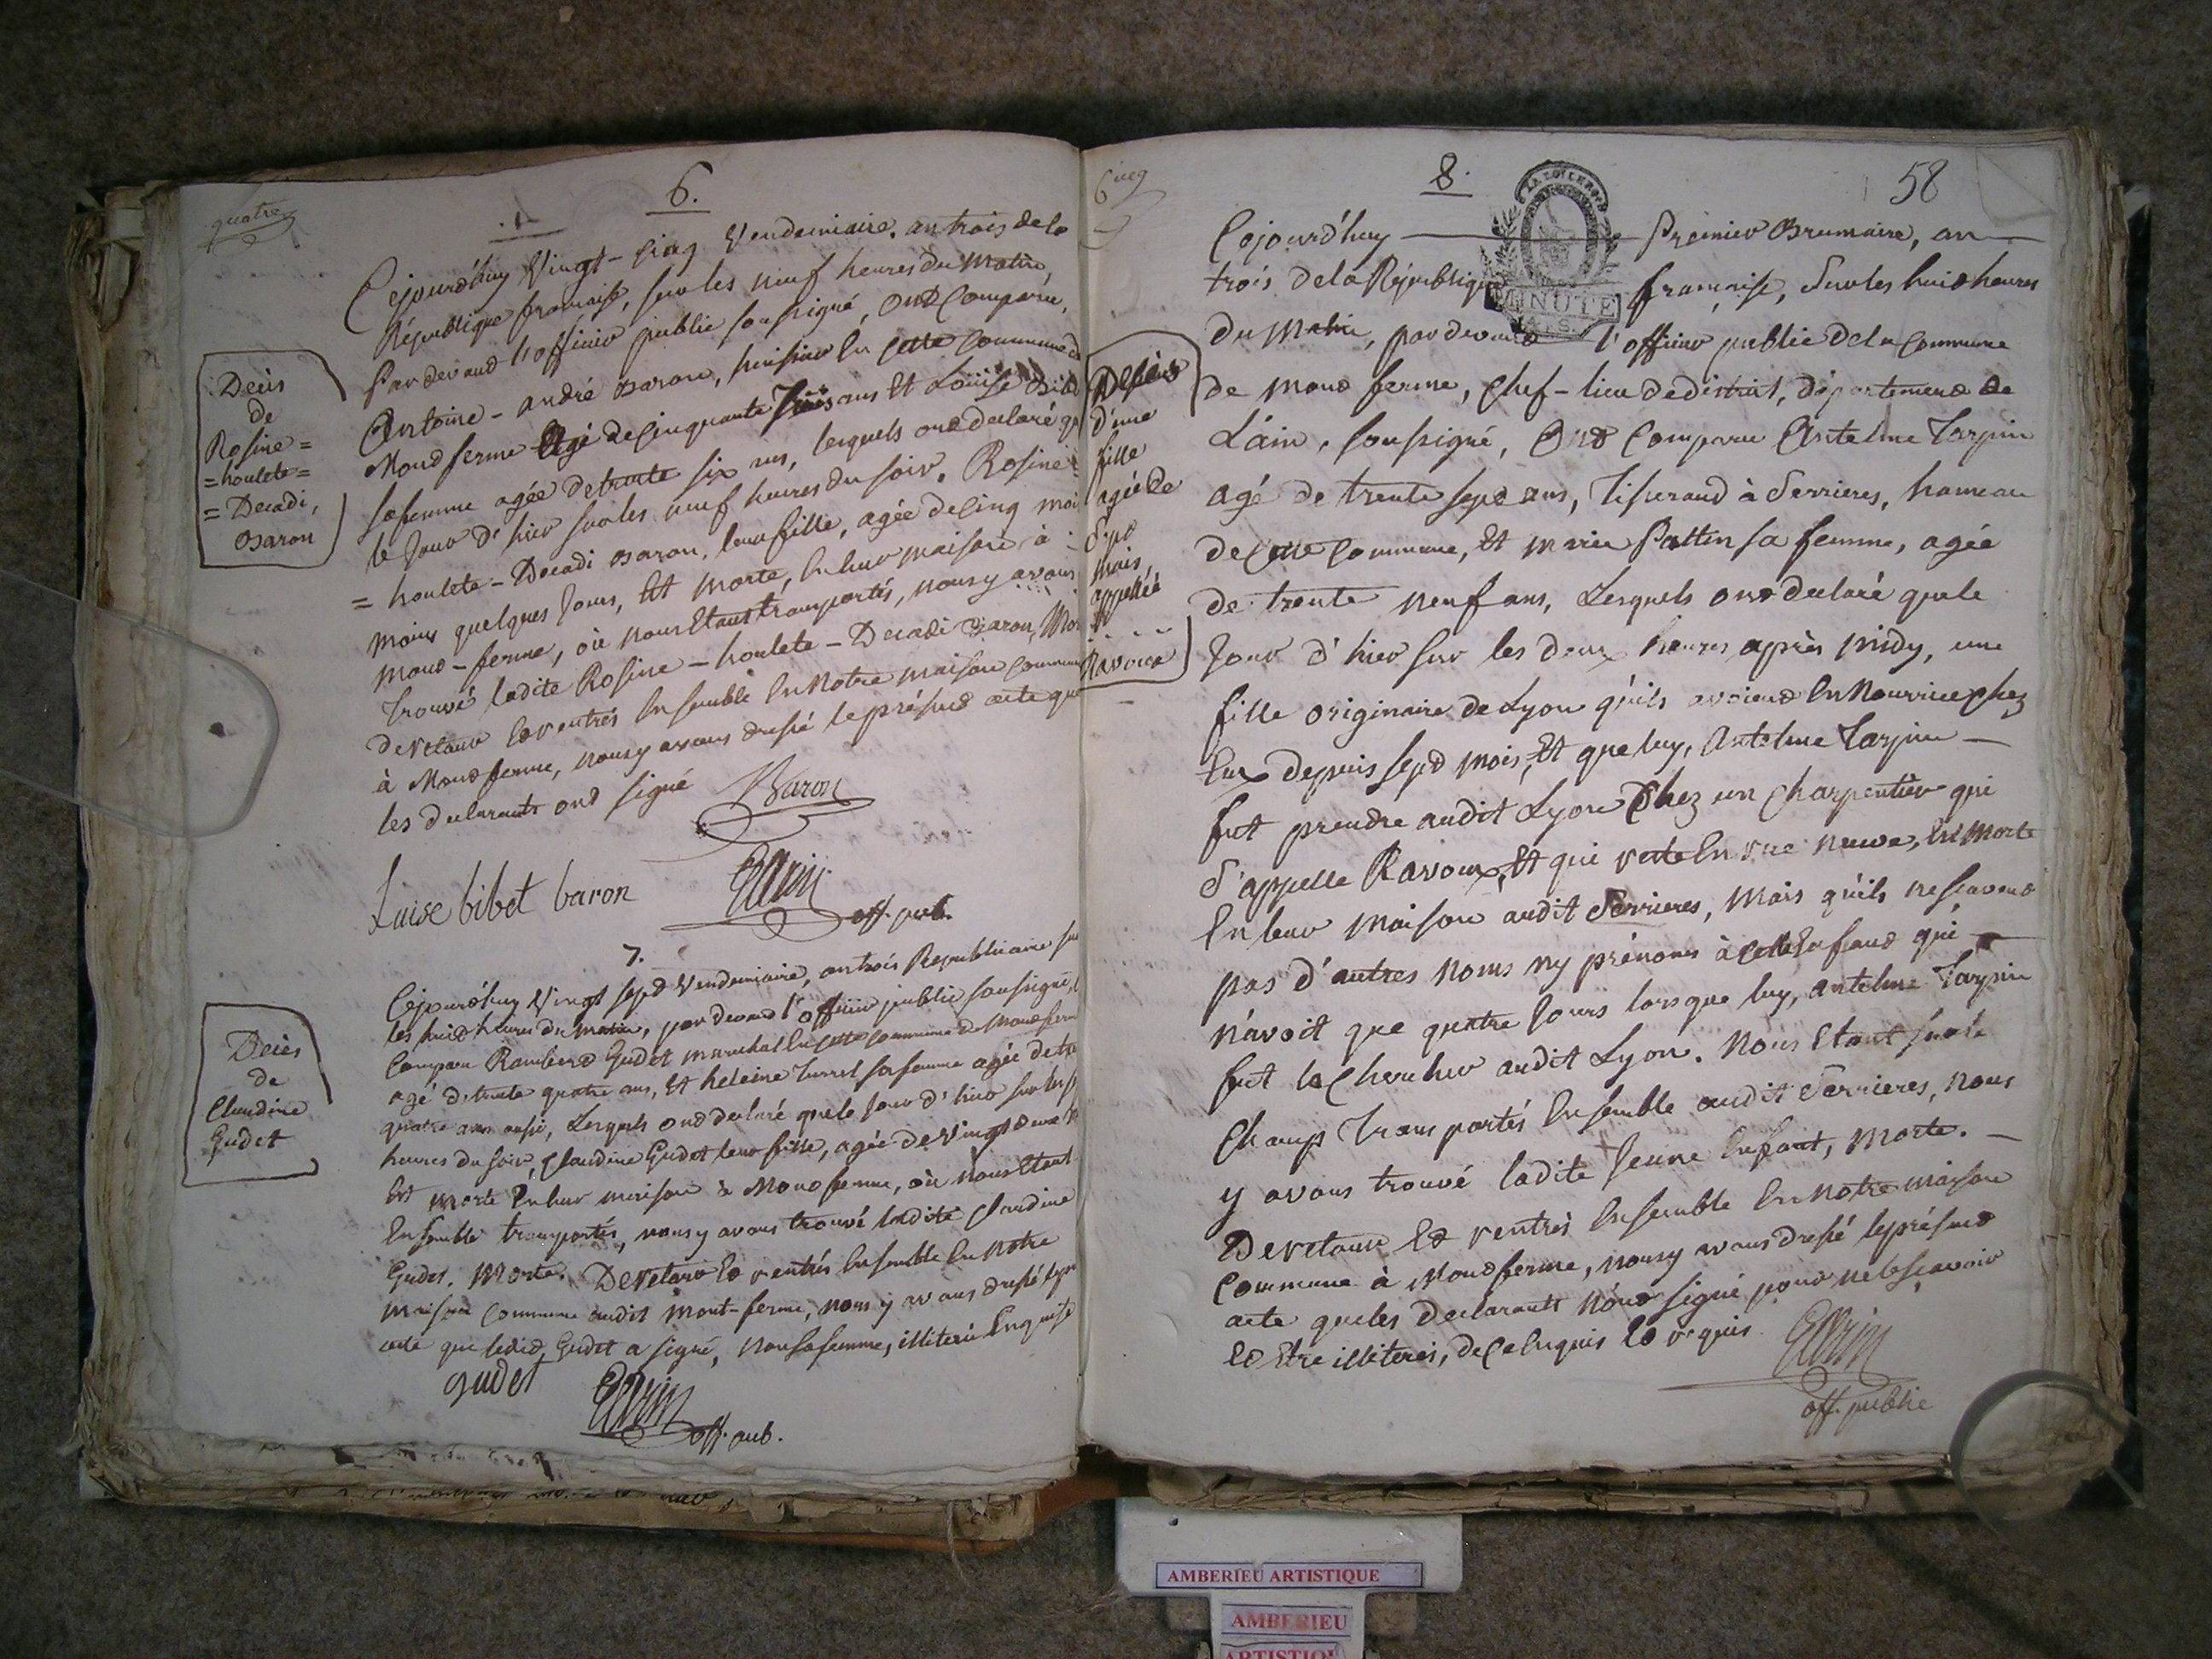 quatre
6.
Cejourd'huy Vingt-cinq Vendemiaire, an trois de la
République française, sur les neuf heures du matin,
Par devant l'officier public soussigné, ont comparu,
Antoine-andré Baron, huissier en cette commune de
Montferme agé de cinquante trois ans et Louïse Bibet
sa femme agée de trente six ans, lesquels ont declaré que
le jour d'hier sur les neuf heures du soir, Rosine=
=houlete-Decadi Baron, leur fille, agée de cinq mois
moins quelques jours, est morte, en leur maison à
mont-ferme, où nous étant transportés, nous y avons
trouvé ladite Rosine-houlete-Decadi Baron, Morte
De retour et rentrés ensemble en notre maison commune
à Montferme, nous y avons dressé le présent acte que
les declarants ont signé
Baron
Luise bibet baron
off. pub.
Decès
de
Rosine=
=houlete=
=Decadi,
Baron
7.
Cejourd'huy Vingt sept Vendemiaire, an trois Republicain sur
les huit heures du matin, par devant l'officier public soussigné,
Comparu Rambert Gudet marechal en cette commune de Montferme
agé de trente quatre ans, et heleine Turrel sa femme agée de trente
quatre ans aussi, Lesquels ont declaré que le jour d'hier sur les
heures du soir, Claudine Gudet leur fille, agée de Vingt deux
Est morte en leur maison à Montferme, où nous étant
Ensemble transportés, nous y avons trouvé ladite Claudine
Gudet. Morte. De retour et rentrés ensemble en notre
maison commune audit mont-ferme, nous y avons dressé le pres
acte que ledit Gudet a signé, non sa femme, illiterée Enquise
gudet
off. pub.
Decès
de
Claudine
Gudet
8.
58
Cejourd'huy Premier Brumaire, an
trois de la République française, sur les huit heures
du Matin, par devant l'officier public de la Commune
de mont ferme, Chef-lieu de district, département de
L'ain, soussigné, Ont Comparu Antelme Tarpin
agé de trente sept ans, Tisserand à Serrieres, hameau
de cette Commune, Et marie Pattin sa femme, agée
de trente neuf ans, Lesquels ont declaré que le
jour d'hier sur les deux heures après midy, une
fille originaire de Lyon qu'ils avoient en Nourrice chez
Eux depuis sept mois, Et que luy, Antelme Tarpin
fut prendre audit Lyon Chez un Charpentier qui
s'appelle Ravoux, Et qui reste en rue neuve, est Morte
en leur maison audit Serrieres, mais qu'ils ne scavent
pas d'autres noms ny prénoms à cette enfant qui
n'avoit que quatre jours lorsque luy, antelme Tarpin
fut la Chercher audit Lyon. Nous étant sur le
Champ Transportés Ensemble audit Serrieres, nous
y avons trouvé ladite jeune Enfant, Morte.
De retour et rentrés Ensemble en notre maison
Commune à Montferme, nous y avons dressé le présent
acte que les declarants n'ont signé pour ne le scavoir
et être illiterés, de ce enquis et requis
off. public
Decès
d'une
fille
agée de
Sept
mois,
appellée
Ravoux
LA LOI LE ROI
MINUTE
AMBERIEU ARTISTIQUE
AMBERIEU
ARTISTIQUE